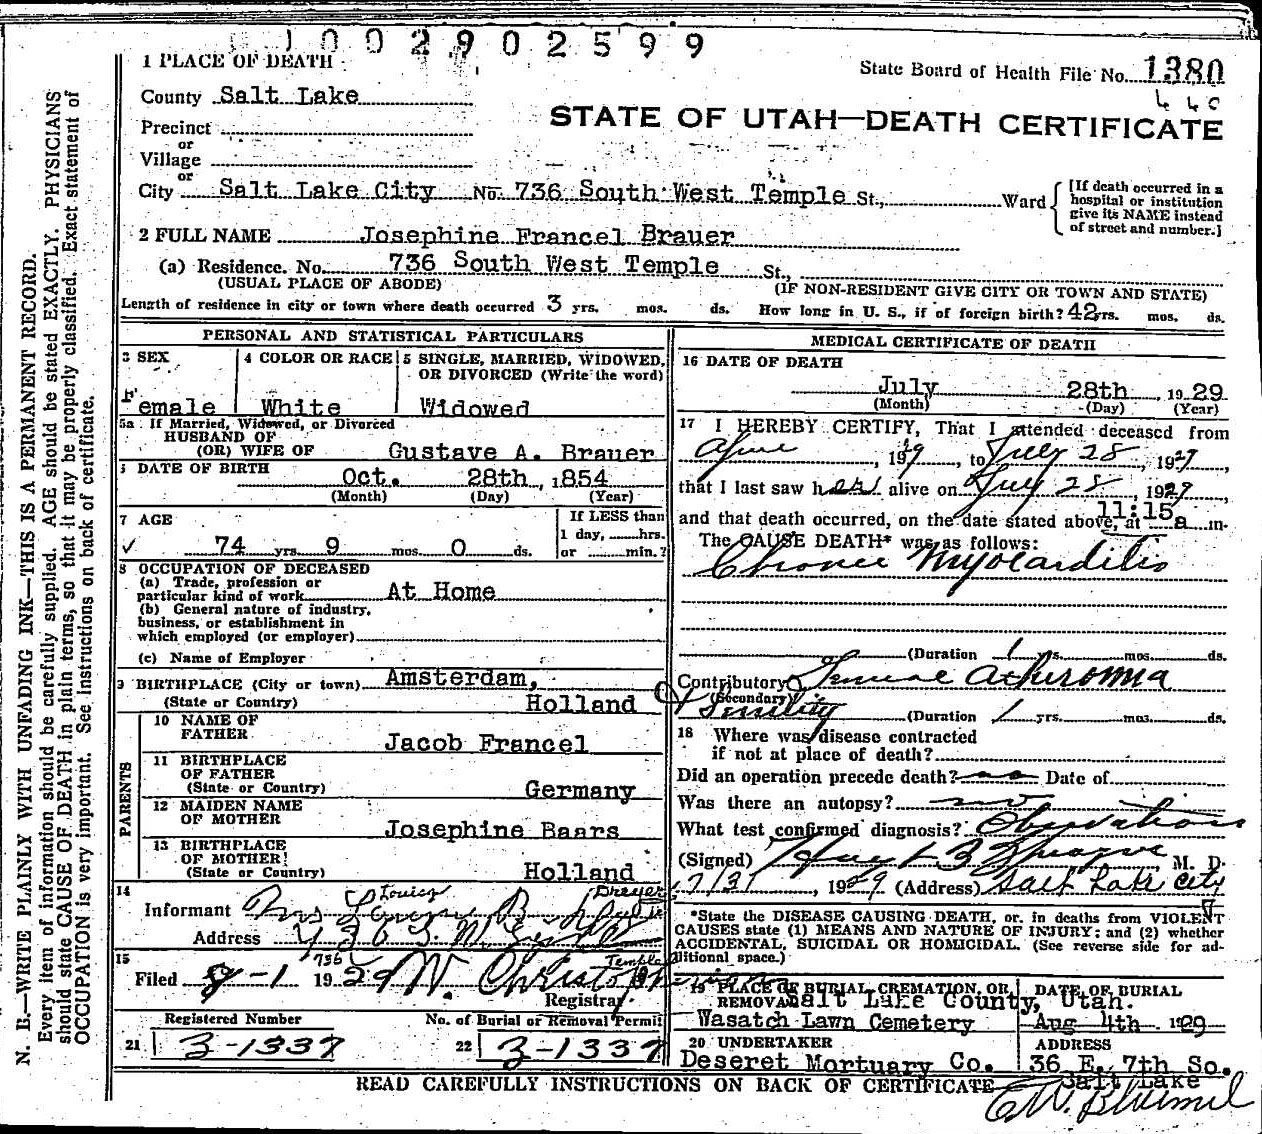 1002902599
1 PLACE OF DEATH
State Board of Health File No. 1380
County Salt Lake
440
STATE OF UTAH—DEATH CERTIFICATE
Precinct
or
Village
or
City Salt Lake City No. 736 South West Temple St., Ward
[If death occurred in a
hospital or institution
give its NAME instead
of street and number.]
2 FULL NAME Josephine Francel Brauer
(a) Residence. No. 736 South West Temple St.,
(USUAL PLACE OF ABODE) (IF NON-RESIDENT GIVE CITY OR TOWN AND STATE)
Length of residence in city or town where death occurred 3 yrs. mos. ds. How long in U. S., if of foreign birth? 42 yrs. mos. ds.
PERSONAL AND STATISTICAL PARTICULARS
3 SEX
Female
4 COLOR OR RACE
White
5 SINGLE, MARRIED, WIDOWED,
OR DIVORCED (Write the word)
Widowed
5a If Married, Widowed, or Divorced
HUSBAND OF
(OR) WIFE OF Gustave A. Brauer
6 DATE OF BIRTH
Oct. 28th, 1854
(Month) (Day) (Year)
7 AGE
74 yrs. 9 mos. 0 ds.
If LESS than
1 day, hrs.
or min.?
8 OCCUPATION OF DECEASED
(a) Trade, profession or
particular kind of work At Home
(b) General nature of industry,
business, or establishment in
which employed (or employer)
(c) Name of Employer
9 BIRTHPLACE (City or town) Amsterdam,
(State or Country) Holland
PARENTS
10 NAME OF
FATHER Jacob Francel
11 BIRTHPLACE
OF FATHER
(State or Country) Germany
12 MAIDEN NAME
OF MOTHER Josephine Baars
13 BIRTHPLACE
OF MOTHER
(State or Country) Holland
14
Informant Mrs
Address 736 S. W. Temple
15
Filed 8-1 1929
Registrar
Registered Number
21 3-1337
No. of Burial or Removal Permit
22 3-1337
MEDICAL CERTIFICATE OF DEATH
16 DATE OF DEATH
July 28th 1929
(Month) (Day) (Year)
17 I HEREBY CERTIFY, That I attended deceased from
, 19 , to July 28, 1929,
that I last saw her alive on July 28, 1929,
and that death occurred, on the date stated above, at 11:15 a m.
The CAUSE DEATH* was as follows:
Chronic Myocarditis
(Duration 1 yrs. mos. ds.
Contributory General Atheroma
(Secondary)
Senility (Duration 1 yrs. mos. ds.
18 Where was disease contracted
if not at place of death?
Did an operation precede death? no Date of
Was there an autopsy? no
What test confirmed diagnosis? Observations
(Signed) Sprague M. D.
7/31, 1929 (Address) Salt Lake City
*State the DISEASE CAUSING DEATH, or, in deaths from VIOLENT
CAUSES state (1) MEANS AND NATURE OF INJURY; and (2) whether
ACCIDENTAL, SUICIDAL OR HOMICIDAL. (See reverse side for ad-
ditional space.)
19 PLACE OF BURIAL, CREMATION, OR
REMOVAL Salt Lake County, Utah.
Wasatch Lawn Cemetery
DATE OF BURIAL
Aug 4th 1929
20 UNDERTAKER
Deseret Mortuary Co.
ADDRESS
36 E. 7th So.
Salt Lake
READ CAREFULLY INSTRUCTIONS ON BACK OF CERTIFICATE
N. B.—WRITE PLAINLY WITH UNFADING INK—THIS IS A PERMANENT RECORD.
Every item of information should be carefully supplied. AGE should be stated EXACTLY. PHYSICIANS
should state CAUSE OF DEATH in plain terms, so that it may be properly classified. Exact statement of
OCCUPATION is very important. See instructions on back of certificate.